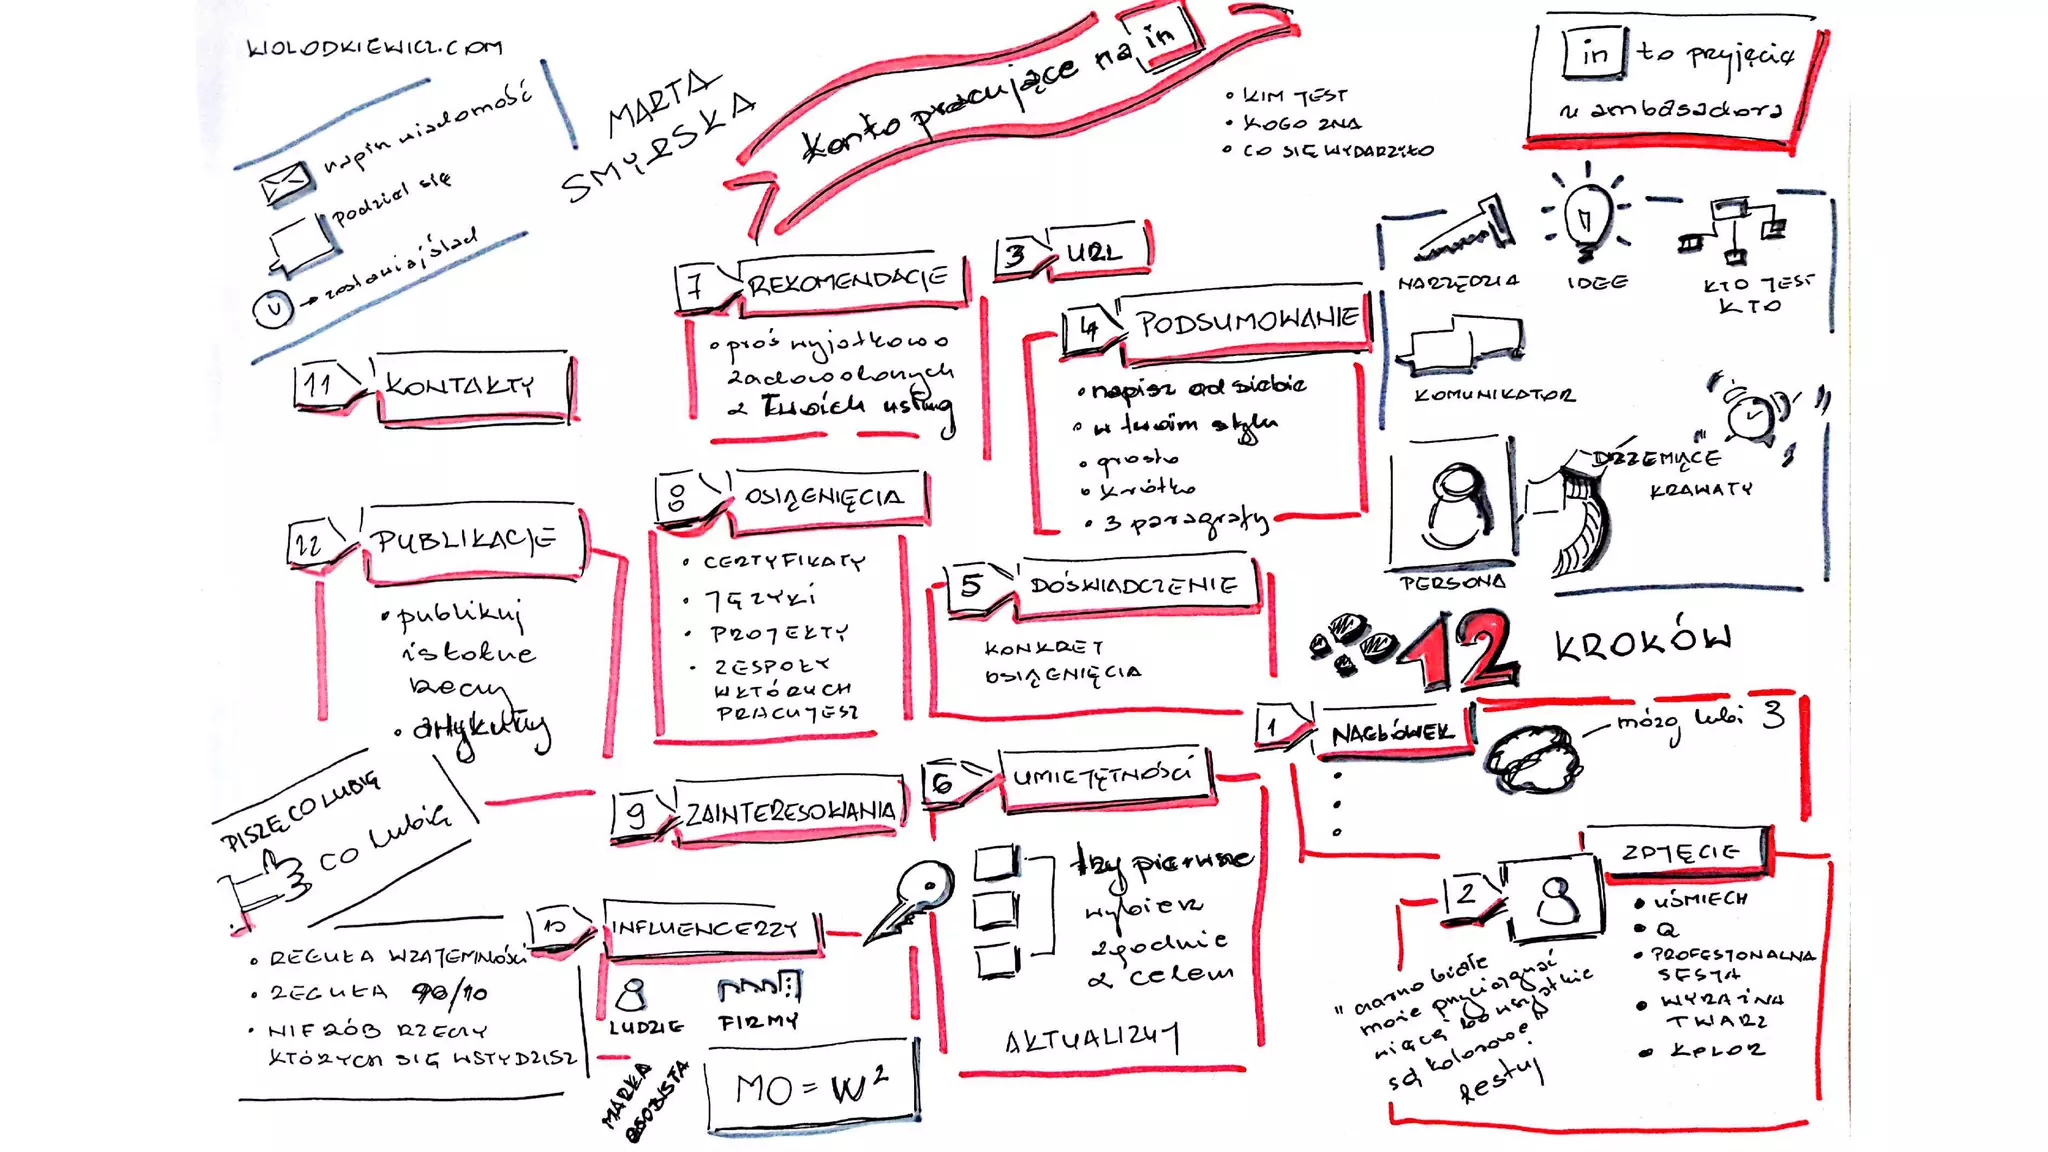 WOLODKIEWICZ.COM
MARTA
SMYRSKA
Konto pracujące na in
• KIM JEST
• KOGO ZNA
• CO SIĘ WYDARZYŁO
in to przyjęcie
u ambasadora
napisz wiadomość
podziel się
→ zostawiaj ślad
NARZĘDZIA
IDEE
KTO JEST
KTO
KOMUNIKATOR
PERSONA
"DRZEMIĄCE
KRAWATY
12 KROKÓW
1 NAGŁÓWEK
mózg lubi 3
2 ZDJĘCIE
• UŚMIECH
• Q
• PROFESJONALNA
SESJA
• WYRAŹNA
TWARZ
• KOLOR
"czarno białe
może przyciągnąć
więcej bo wszystkie
są kolorowe"
testuj
3 URL
4 PODSUMOWANIE
• napisz od siebie
• w twoim stylu
• prosto
• krótko
• 3 paragrafy
5 DOŚWIADCZENIE
KONKRET
OSIĄGNIĘCIA
6 UMIEJĘTNOŚCI
trzy pierwsze
wybierz
zgodnie
z celem
AKTUALIZUJ
7 REKOMENDACJE
• proś wyjątkowo
zadowolonych
z Twoich usług
8 OSIĄGNIĘCIA
• CERTYFIKATY
• JĘZYKI
• PROJEKTY
• ZESPOŁY
W KTÓRYCH
PRACUJESZ
9 ZAINTERESOWANIA
10 INFLUENCERZY
LUDZIE
FIRMY
11 KONTAKTY
12 PUBLIKACJE
• publikuj
istotne
rzeczy
• artykuły
PISZĘ CO LUBIĘ
CO LUBIĘ
• REGUŁA WZAJEMNOŚCI
• REGUŁA 90/10
• NIE RÓB RZECZY
KTÓRYCH SIĘ WSTYDZISZ
MARKA
OSOBISTA
MO = W²